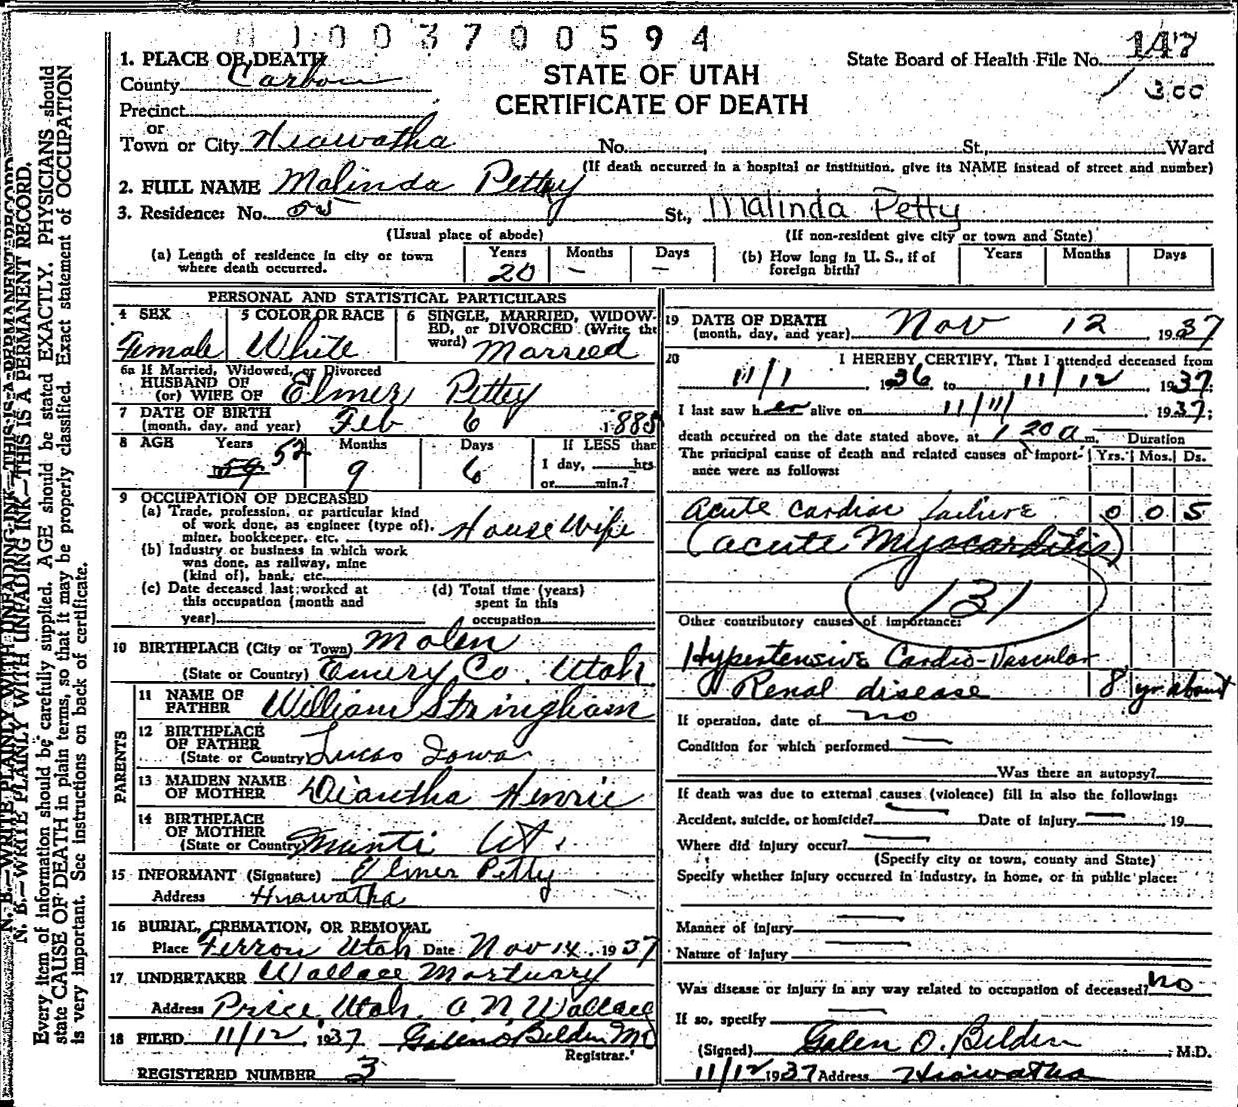 0 1 0 0 3 7 0 0 5 9 4
1. PLACE OF DEATH
County Carbon
Precinct
or
Town or City Hiawatha No. , St., Ward
(If death occurred in a hospital or institution, give its NAME instead of street and number)
STATE OF UTAH
CERTIFICATE OF DEATH
State Board of Health File No. 147
300
2. FULL NAME Malinda Petty
3. Residence: No. 55 St., Malinda Petty
(Usual place of abode) (If non-resident give city or town and State)
(a) Length of residence in city or town where death occurred. Years 20 Months – Days –
(b) How long in U. S., if of foreign birth? Years Months Days
PERSONAL AND STATISTICAL PARTICULARS
4 SEX Female
5 COLOR OR RACE White
6 SINGLE, MARRIED, WIDOWED, or DIVORCED (Write the word) Married
6a If Married, Widowed, or Divorced
HUSBAND OF
(or) WIFE OF Elmer Pettey
7 DATE OF BIRTH
(month, day, and year) Feb 6 1885
8 AGE Years 59 52 Months 9 Days 6 If LESS than
1 day, hrs
or min.?
9 OCCUPATION OF DECEASED
(a) Trade, profession, or particular kind
of work done, as engineer (type of),
miner, bookkeeper, etc. House Wife
(b) Industry or business in which work
was done, as railway, mine
(kind of), bank, etc.
(c) Date deceased last worked at
this occupation (month and
year)
(d) Total time (years)
spent in this
occupation
10 BIRTHPLACE (City or Town) Molen
(State or Country) Emery Co. Utah
PARENTS
11 NAME OF
FATHER William Stringham
12 BIRTHPLACE
OF FATHER
(State or Country) Lucas Iowa
13 MAIDEN NAME
OF MOTHER Diantha Henrie
14 BIRTHPLACE
OF MOTHER
(State or Country) Manti Ut.
15 INFORMANT (Signature) Elmer Petty
Address Hiawatha
16 BURIAL, CREMATION, OR REMOVAL
Place Ferron Utah Date Nov 14 1937
17 UNDERTAKER Wallace Mortuary
Address Price Utah. O N Wallace
18 FILED 11/12, 1937 Galen O Belden MD
Registrar.
REGISTERED NUMBER 3
19 DATE OF DEATH
(month, day, and year) Nov 12 1937
20 I HEREBY CERTIFY, That I attended deceased from
11/1 1936 to 11/12 1937;
I last saw her alive on 11/11 1937;
death occurred on the date stated above, at 1 20 a m. Duration
The principal cause of death and related causes of importance were as follows: Yrs. Mos. Ds.
Acute cardiac failure 0 0 5
(acute Myocarditis)
131
Other contributory causes of importance:
Hypertensive Cardio-Vascular
Renal disease 8 yr about
If operation, date of no
Condition for which performed
Was there an autopsy?
If death was due to external causes (violence) fill in also the following:
Accident, suicide, or homicide? Date of injury , 19
Where did injury occur?
(Specify city or town, county and State)
Specify whether injury occurred in industry, in home, or in public place:
Manner of injury
Nature of injury
Was disease or injury in any way related to occupation of deceased? no
If so, specify
(Signed) Galen O. Belden , M.D.
11/12 1937 Address Hiawatha
N. B.—WRITE PLAINLY WITH UNFADING INK—THIS IS A PERMANENT RECORD.
N. B.—WRITE PLAINLY WITH UNFADING INK—THIS IS A PERMANENT RECORD.
Every item of information should be carefully supplied. AGE should be stated EXACTLY. PHYSICIANS should
state CAUSE OF DEATH in plain terms, so that it may be properly classified. Exact statement of OCCUPATION
is very important. See instructions on back of certificate.